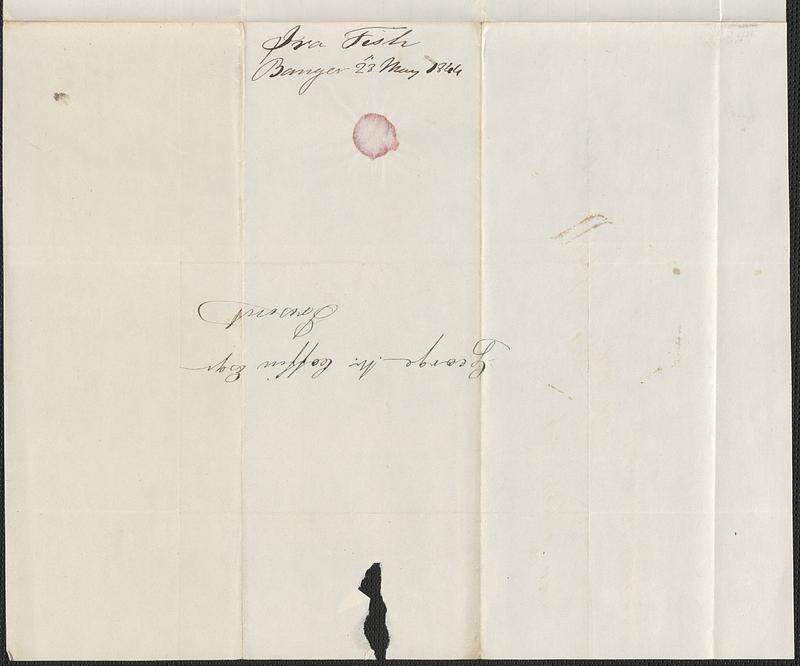 Ira Fish
Bangor 23 May 1844
George W. Coffin Esqr
Present